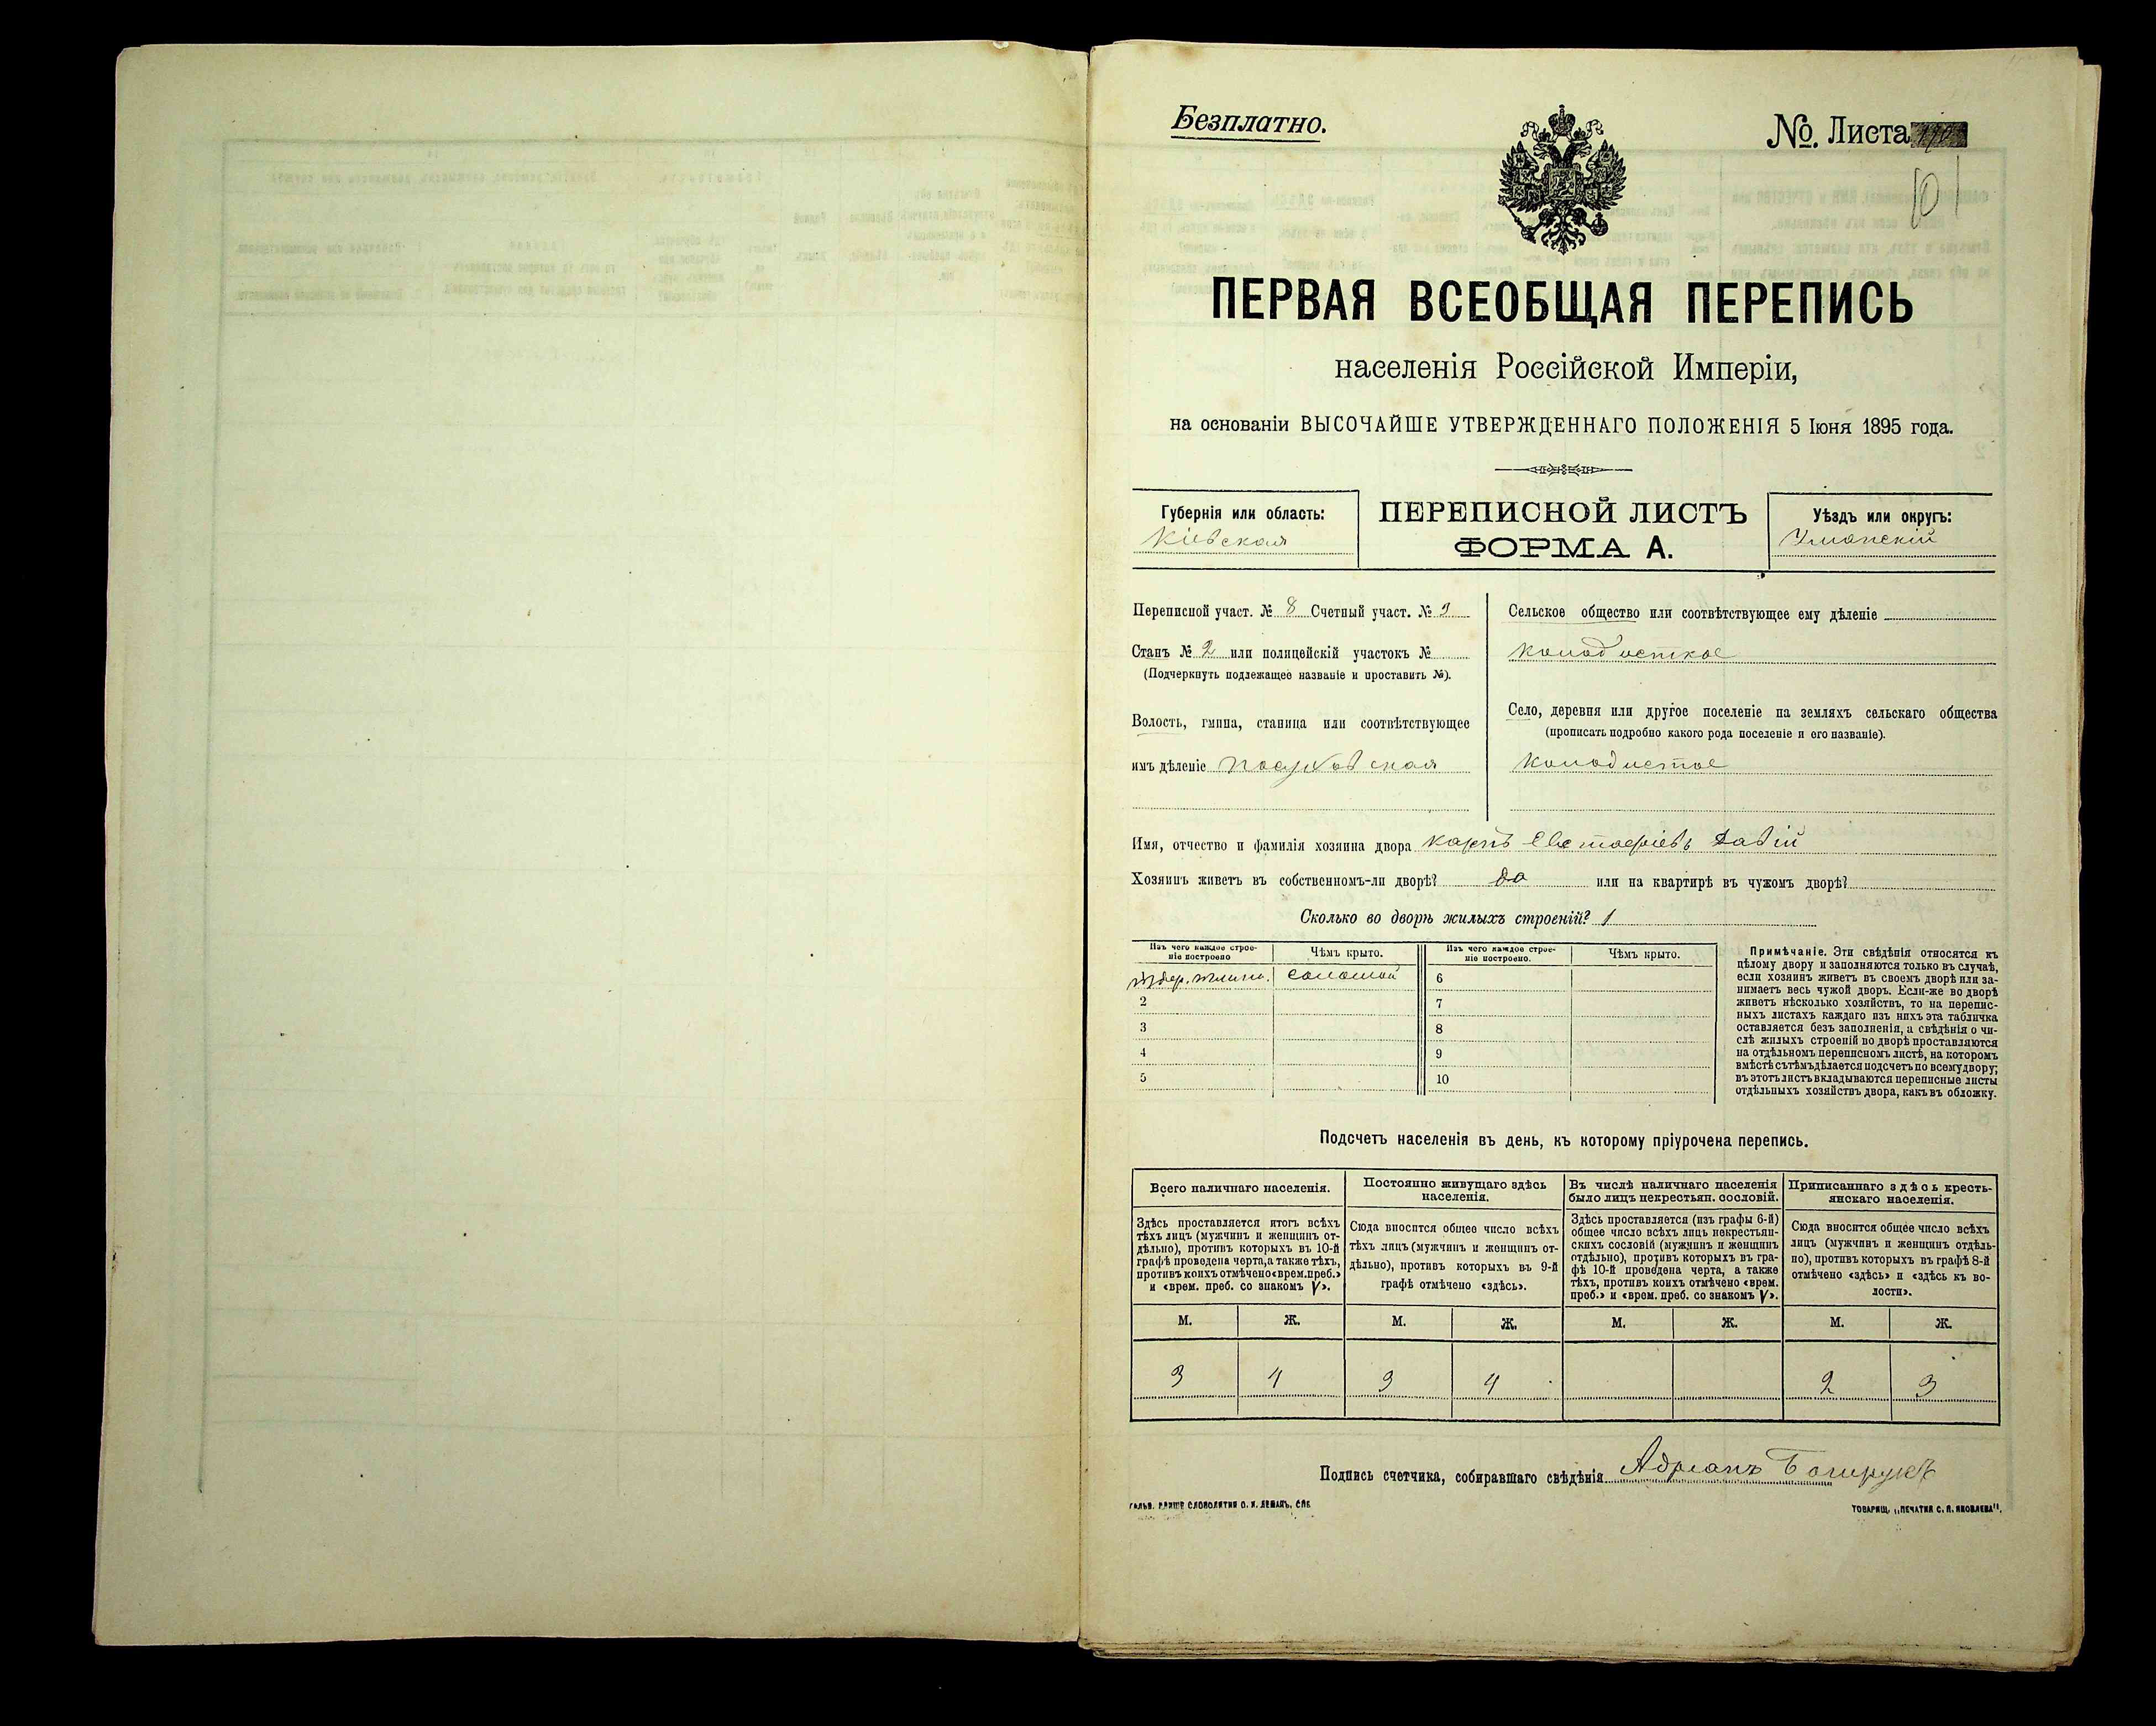 Безплатно.
№. Листа
101
ПЕРВАЯ ВСЕОБЩАЯ ПЕРЕПИСЬ
населенія Россійской Имперіи,
на основаніи ВЫСОЧАЙШЕ УТВЕРЖДЕННАГО ПОЛОЖЕНІЯ 5 Іюня 1895 года.
Губернія или область:
Кіевская
ПЕРЕПИСНОЙ ЛИСТЪ
ФОРМА А.
Уѣздъ или округъ:
Уманскій
Переписной участ. № 8 Счетный участ. № 9
Станъ № 2 или полицейскій участокъ №
(Подчеркнуть подлежащее названіе и проставить №).
Волость, гмина, станица или соотвѣтствующее
имъ дѣленіе
Сельское общество или соотвѣтствующее ему дѣленіе
Колодисткое
Село, деревня или другое поселеніе на земляхъ сельскаго общества
(прописать подробно какого рода поселеніе и его названіе).
Колодистое
Имя, отчество и фамилія хозяина двора Карпъ Евстафіевъ
Хозяинъ живетъ въ собственномъ-ли дворѣ? да или на квартирѣ въ чужомъ дворѣ?
Сколько во дворѣ жилыхъ строеній? 1
Изъ чего каждое строеніе построено
Чѣмъ крыто.
Изъ чего каждое строеніе построено.
Чѣмъ крыто.
соломой
6
2
7
3
8
4
9
5
10
Примѣчаніе. Эти свѣдѣнія относятся къ
цѣлому двору и заполняются только въ случаѣ,
если хозяинъ живетъ въ своемъ дворѣ или за-
нимаетъ весь чужой дворъ. Если-же во дворѣ
живетъ нѣсколько хозяйствъ, то на перепис-
ныхъ листахъ каждаго изъ нихъ эта табличка
оставляется безъ заполненія, а свѣдѣнія о чи-
слѣ жилыхъ строеній во дворѣ проставляются
на отдѣльномъ переписномъ листѣ, на которомъ
вмѣстѣ съ тѣмъ дѣлается подсчетъ по всему двору;
въ этотъ листъ вкладываются переписные листы
отдѣльныхъ хозяйствъ двора, какъ въ обложку.
Подсчетъ населенія въ день, къ которому пріурочена перепись.
Всего наличнаго населенія.
Здѣсь проставляется итогъ всѣхъ
тѣхъ лицъ (мужчинъ и женщинъ от-
дѣльно), противъ которыхъ въ 10-й
графѣ проведена черта, а также тѣхъ,
противъ коихъ отмѣчено «врем. преб.»
и «врем. преб. со знакомъ V».
Постоянно живущаго здѣсь
населенія.
Сюда вносится общее число всѣхъ
тѣхъ лицъ (мужчинъ и женщинъ от-
дѣльно), противъ которыхъ въ 9-й
графѣ отмѣчено «здѣсь».
Въ числѣ наличнаго населенія
было лицъ некрестьян. сословій.
Здѣсь проставляется (изъ графы 6-й)
общее число всѣхъ лицъ некрестьян-
скихъ сословій (мужчинъ и женщинъ
отдѣльно), противъ которыхъ въ гра-
фѣ 10-й проведена черта, а также
тѣхъ, противъ коихъ отмѣчено «врем.
преб.» и «врем. преб. со знакомъ V».
Приписаннаго здѣсь кресть-
янскаго населенія.
Сюда вносится общее число всѣхъ
лицъ (мужчинъ и женщинъ отдѣль-
но), противъ которыхъ въ графѣ 8-й
отмѣчено «здѣсь» и «здѣсь къ во-
лости».
М. Ж. М. Ж. М. Ж. М. Ж.
3 4 3 4 2 3
Подпись счетчика, собиравшаго свѣдѣнія Адріанъ
ГАЛЬВ. КЛИШЕ СЛОВОЛИТНИ О. И. ЛЕМАНЪ, СПБ.
ТОВАРИЩ. „ПЕЧАТНЯ С. П. ЯКОВЛЕВА“.